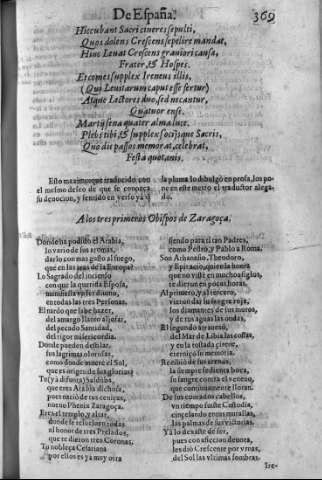 De España. 369
Hic cubant Sacri cineres sepulti,
Quos dolens Crescens sepelire mandat,
Hinc Leuat Crescens grauiori causa,
Frater, & Hospes.
Et comes supplex Ireneus illis,
(Qui Leuitarum caput esse fertur)
Atque Lectores duo, sed necantur,
Quatuor ense.
Martij sena quater alma luce.
Plebs tibi, & supplex socijsque Sacris,
Quo die passos memorat, celebrat,
Festa quotannis.
Esto mas imo que traducido, con
el mesmo deseo de que se conozca
su deuocion, y sentido en verso ya q̃
la pluma lo dibulgò en prosa, los po-
ne en este metro el traductor alega-
do.
A los tres primeros Obispos de Zaragoça.
Donde ha podido el Arabia,
lo vario de sus aromas,
darlo con mas gusto al fuego,
que en las aras de la Europa?
Lo Sagrado del incienso
con que la querida Esposa,
enrodas las tres Personas.
El nardo que labe hazer,
del amargo llanto aljofar,
del pecado Santidad,
del rigor misericordia.
Donde pueden destilar,
sus lagrimas olorosas,
como donde muere el Sol,
que es origen de sus glorias?
Tu (ya difunta) Salduba,
que eres Arabia dichosa,
pues naciò de tus cenizas,
nuestro Phenix Zaragoça.
Eres el templo, y altar,
donde se
al honor de tres Prelados,
que te dieron tres Coronas,
Tu nobleça Cesariana
por ellos es ya muy otra
siendo para ti tus Padres,
como Pedro, y Pablo a Roma.
Son Athanasio, Theodoro,
y Epitacio, quien la honra
que no viste en muchos siglos,
te dieron en pocas horas.
Al primero, y al tercero,
vieron dar su sangre roja,
los diamantes de sus muros,
y de tus aguas las ondas.
El segundo
del Mar de Libia las costas,
y en la tostada
eternicò su memoria.
Recibiò de tus arenas,
la siempre sedienta boca,
su sangre contra el veneno,
que continuamente lloran.
De sus cuitados cabellos,
vn tiempo fuiste Custodia,
ciñe glandolos
las palmas de sus victorias.
Ya lo dexaste de ser,
pues con afeccion deuota,
les diò Crescente por vrnas,
del Sol las vltimas sombras.
Ire-